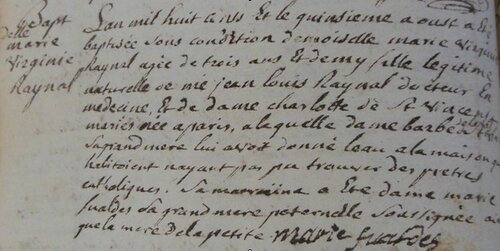 Bapt
delle
marie
Virginie
Raynal
L'an mil huit cents Et le quinsieme aoust a Eté
baptisée Sous condition demoiselle marie Virginie
Raynal agée de trois ans Et demy fille legitime
naturelle de mr jean Louis Raynal docteur En
medecine, Et de dame charlotte de St Vincent
mariés née a paris, a laquelle dame barbe
Sa grand mere lui avoit donné leau a la maison
habitoient nayant pas pu trouver des pretres
catholiques. Sa marraine a Eté dame marie
fualdes Sa grand mere paternelle Soussignée a
que la mere de la petite marie fualdes